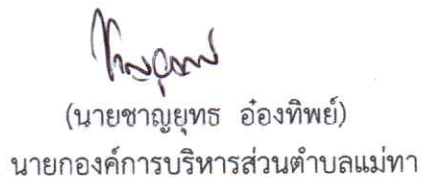 (นายชาญยุทธ อ๋องทิพย์)
นายกองค์การบริหารส่วนตำบลแม่ทา